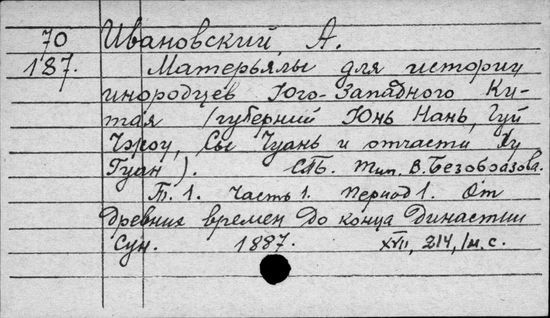 70 Ивановский, А.
187. Матерьялы для истории
инородцев Юго-Западного Ки-
тая (губерний Юнь Нань, Гуй
Чжоу, Сы Чуань и отчасти Ху
Гуан). СПБ. Тип. В. Безобразова.
Т. 1. Часть 1. Период 1. От
древних времен до конца Династии
Сун. 1887. XVII, 214, 1 м. с.